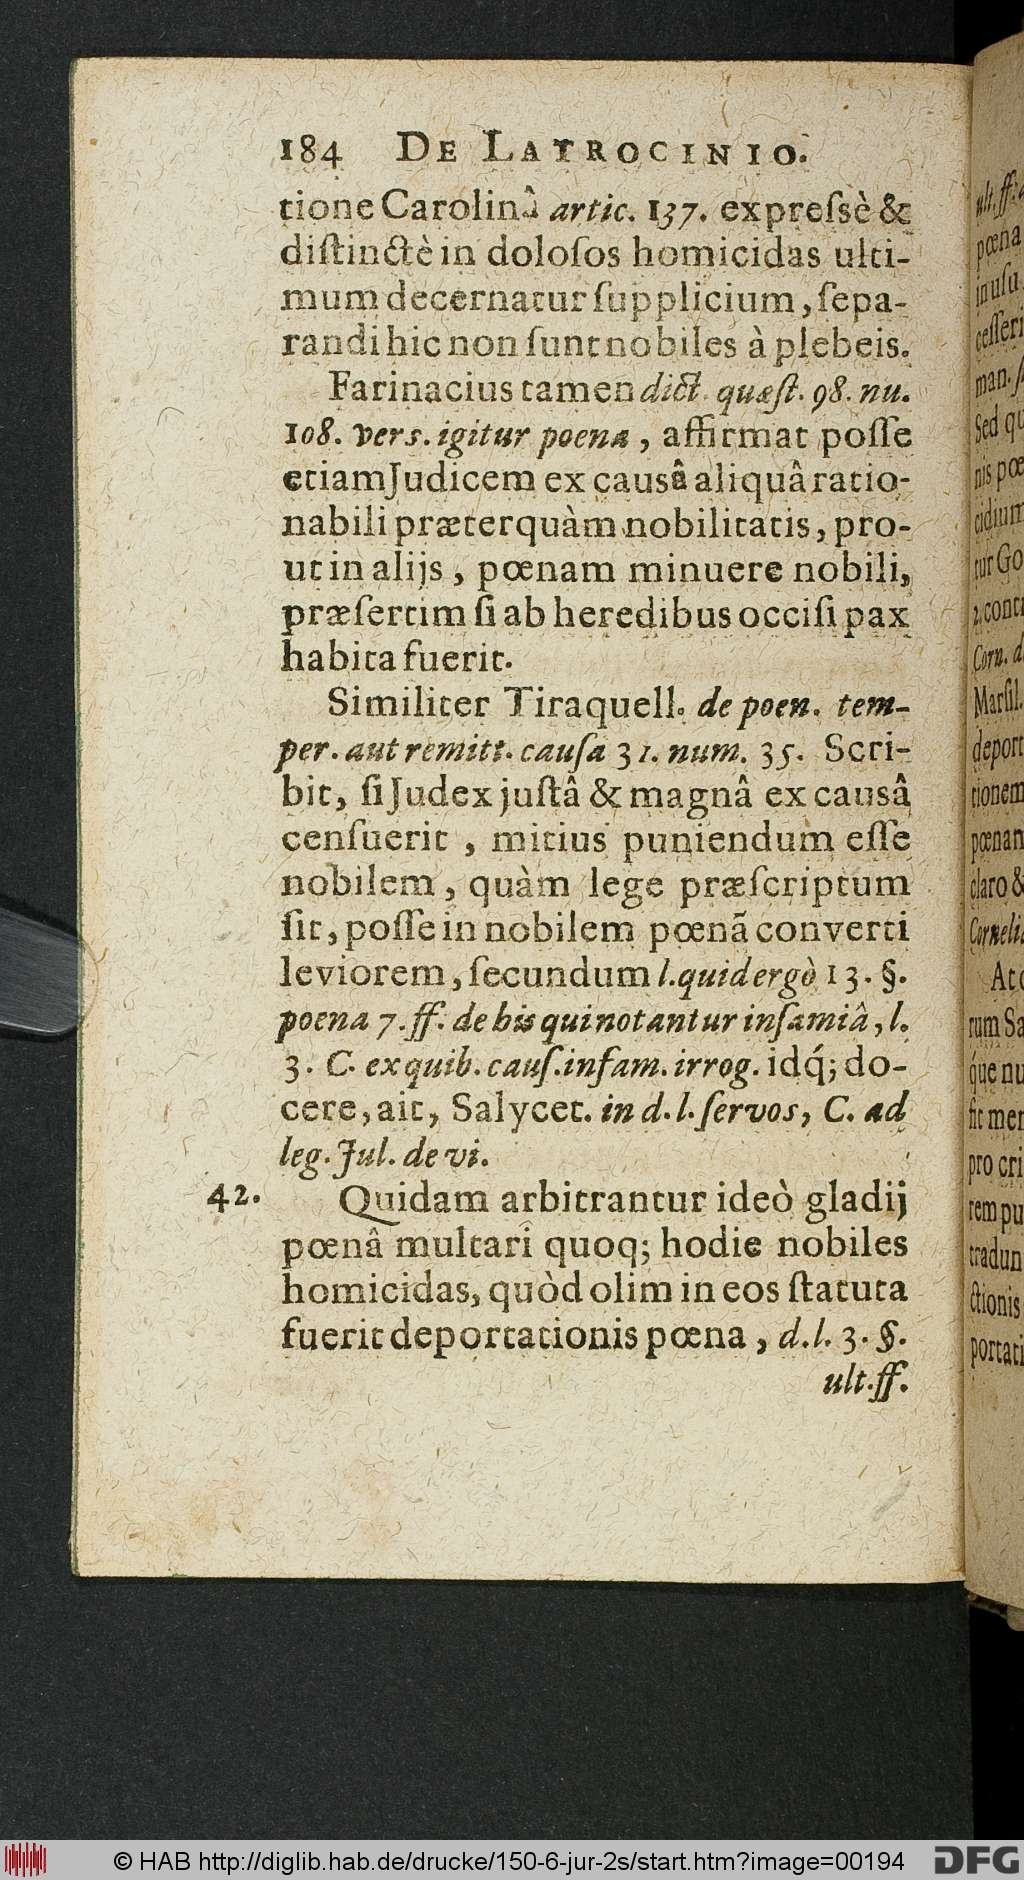 184 DE LATROCINIO.
tione Carolinâ artic. 137. expreſsè &
diſtinctè in doloſos homicidas ulti-
mum decernatur ſupplicium, ſepa-
randi hic non ſunt nobiles à plebeis.
Farinacius tamen dict. quæſt. 98. nu.
108. verſ. igitur poena, affirmat poſſe
etiam Judicem ex causâ aliquâ ratio-
nabili præterquàm nobilitatis, pro-
ut in alijs, pœnam minuere nobili,
præſertim ſi ab heredibus occiſi pax
habita fuerit.
Similiter Tiraquell. de poen. tem-
per. aut remitt. cauſa 31. num. 35. Scri-
bit, ſi Judex juſtâ & magnâ ex causâ
cenſuerit, mitius puniendum eſſe
nobilem, quàm lege præſcriptum
ſit, poſſe in nobilem pœnã converti
leviorem, ſecundum l. quid ergò 13. §.
poena 7. ff. de his qui notantur inſamiâ, l.
3. C. ex quib. cauſ. infam. irrog. idq́; do-
cere, ait, Salycet. in d. l. ſervos, C. ad
leg. Jul. de vi.
42. Quidam arbitrantur ideò gladij
pœnâ multari quoq; hodie nobiles
homicidas, quòd olim in eos ſtatuta
fuerit deportationis pœna, d. l. 3. §.
ult. ff.
ult. ff.
pœna
in uſu
ceſſeri
man.
Sed qu
nis pœ
cidium
tur Go
2. contr
Corn. d
Marſil.
deport
tionem
pœnan
claro &
Cornelia
At
rum Sa
q́ue nu
ſit mer
pro cri
rem pu
tradun
ctionis
portati
© HAB http://diglib.hab.de/drucke/150-6-jur-2s/start.htm?image=00194
DFG